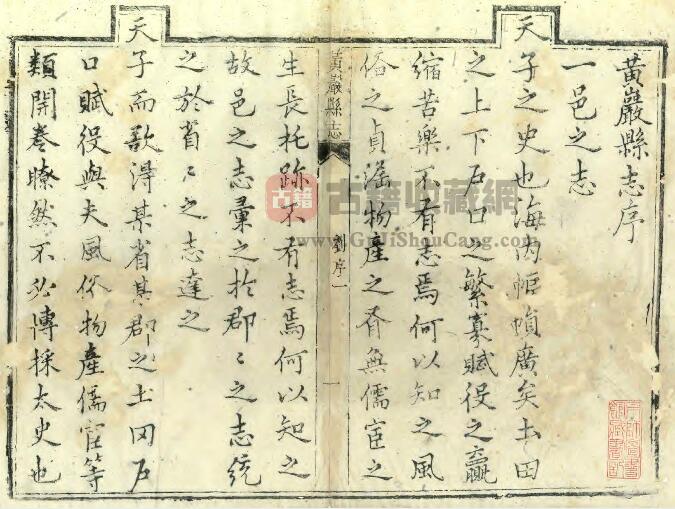 黄巖縣志序
一邑之志
天子之史也海内幅幀廣矣土田
之上下戶口之繁寡賦役之贏
縮苦樂不有志焉何以知之風
俗之貞淫物產之有無儒宦之
黃巖縣志
劉序一
一
生長托跡不有志焉何以知之
故邑之志彙之於郡〻之志統
之於省〻之志達之
天子而欲得某省某郡之土田戶
口賦役與夫風俗物產儒宦等
類開卷瞭然不必傳採太史也
古籍
古籍收藏網
www.GuJiShouCang.com